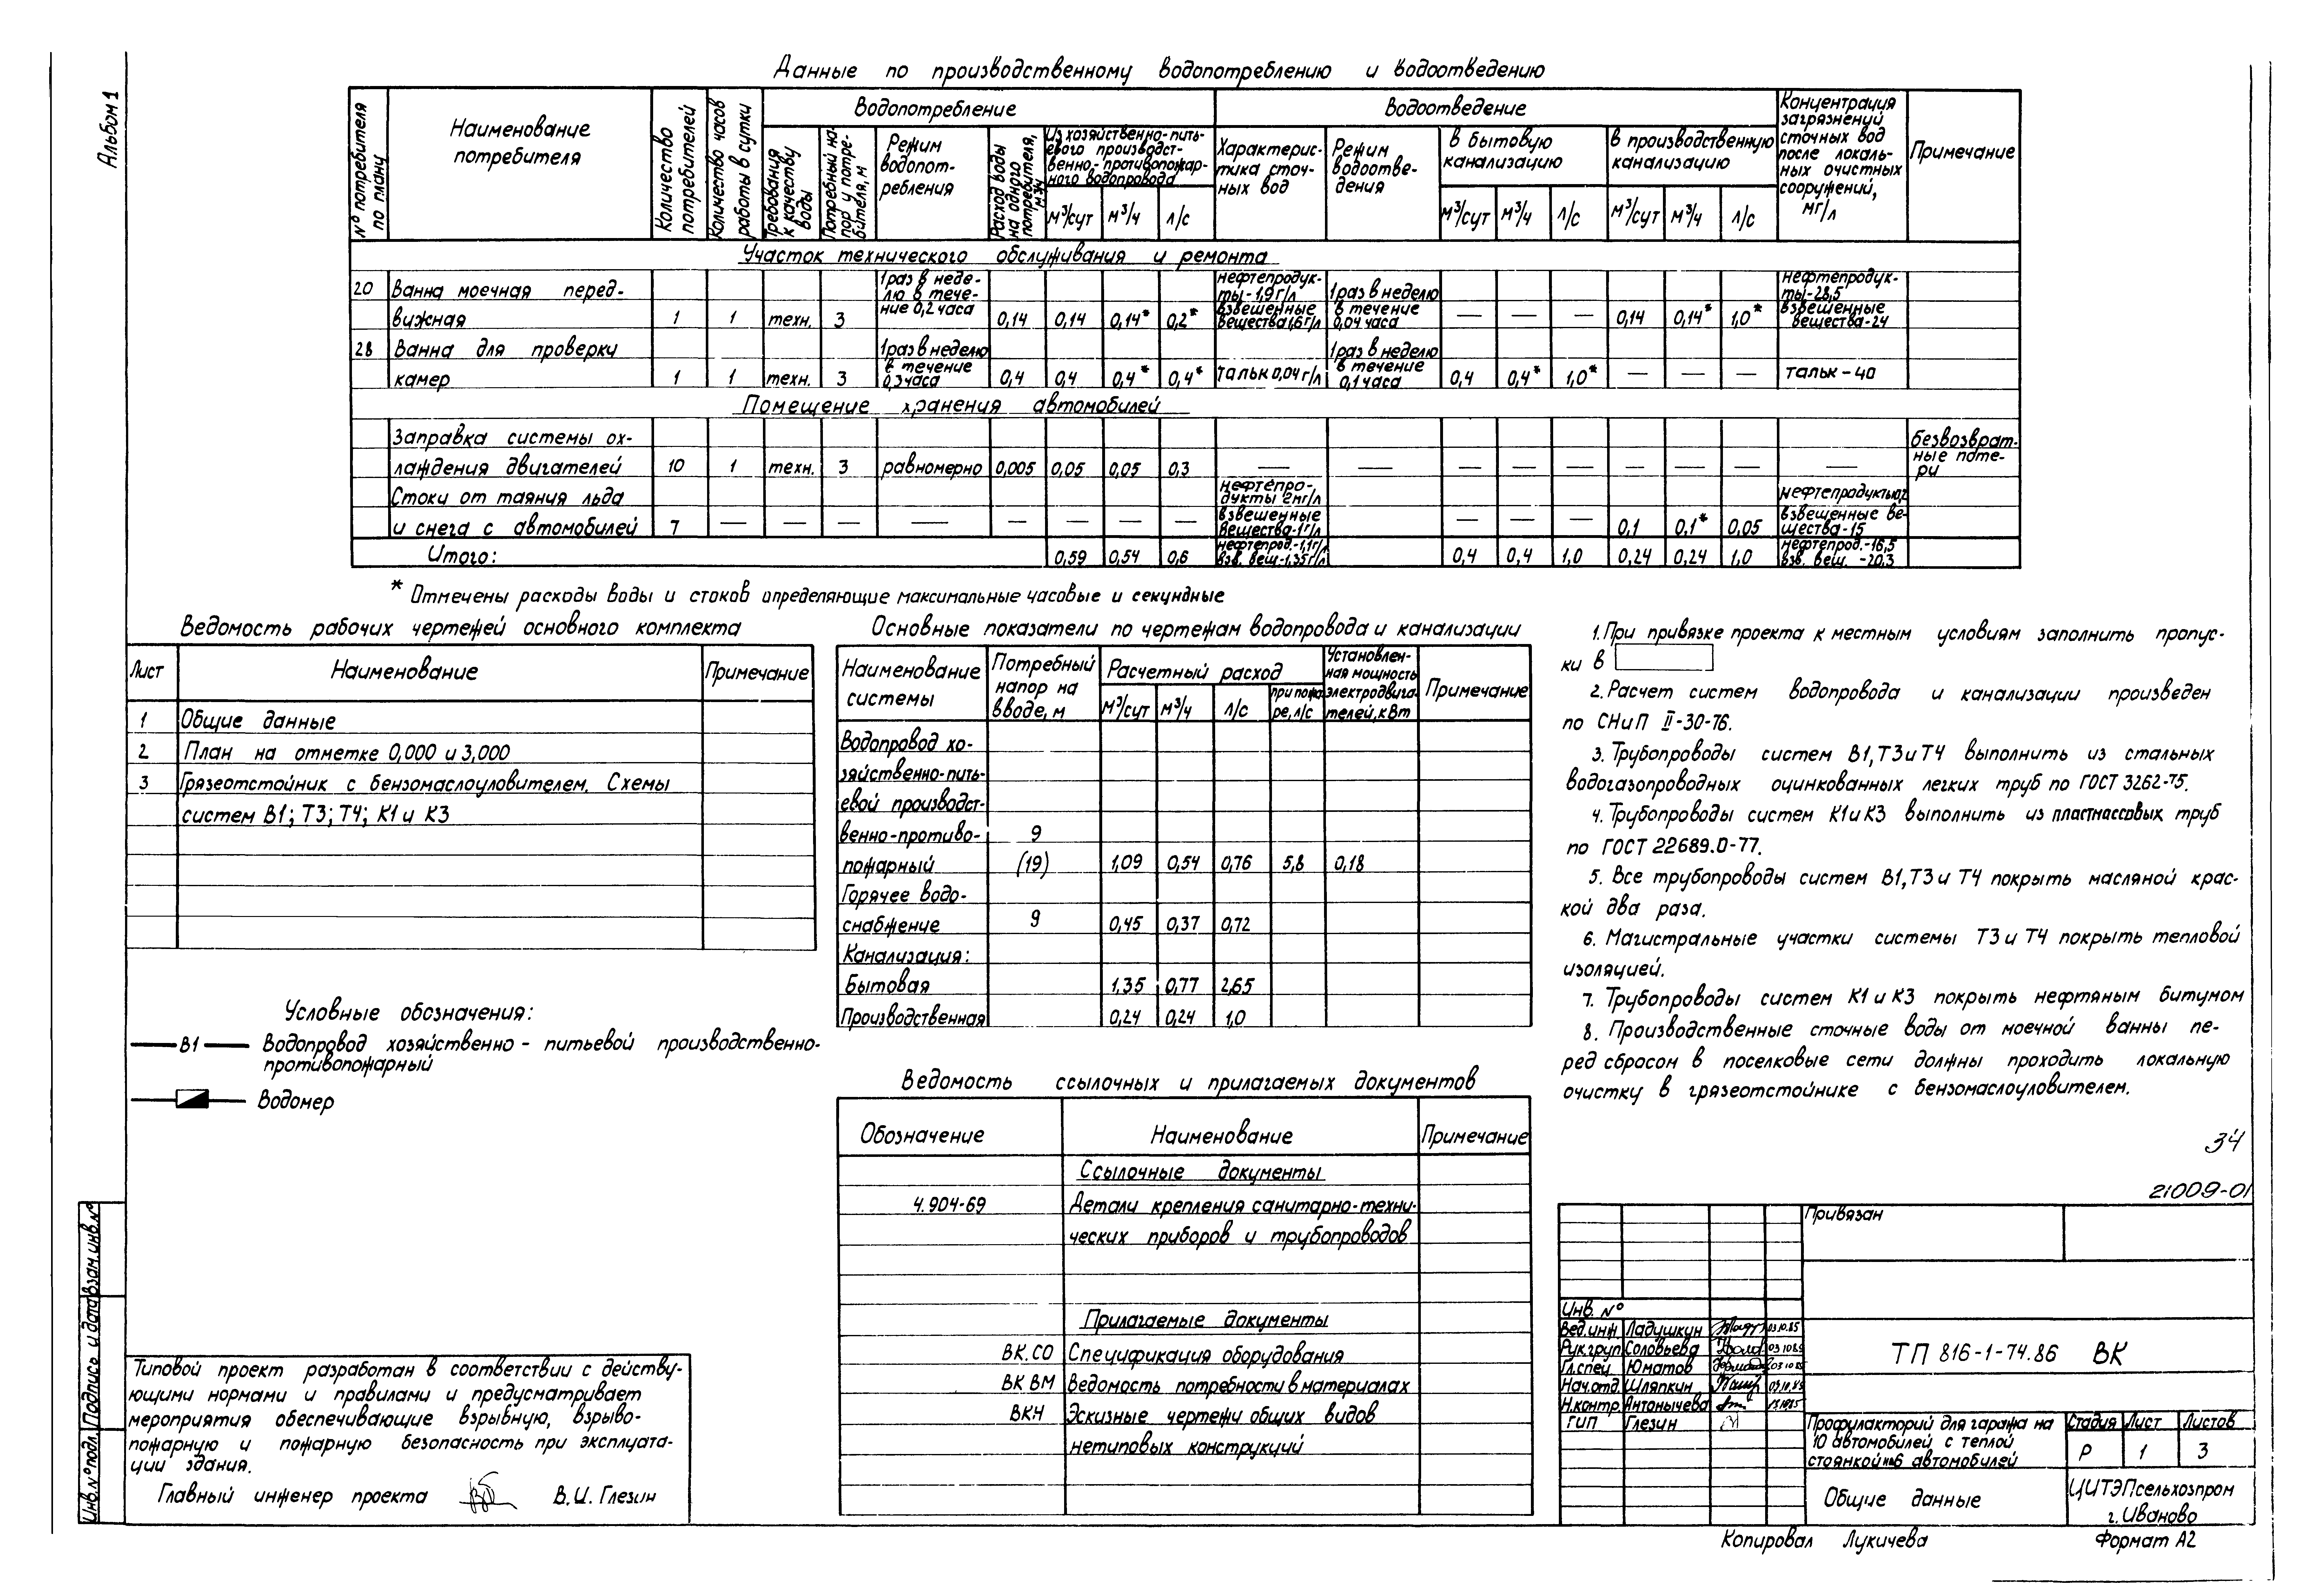 Альбом 1
Данные по производственному водопотреблению и водоотведению
№ потребителя по плану
Наименование потребителя
Количество потребителей
Количество часов работы в сутки
Водопотребление
Требования к качеству воды
Потребный напор у потребителя, м
Режим водопотребления
Расход воды на одного потребителя, м³/ч
Из хозяйственно-питьевого производственно-противопожарного водопровода
м³/сут м³/ч л/с
Водоотведение
Характеристика сточных вод
Режим водоотведения
в бытовую канализацию
м³/сут м³/ч л/с
в производственную канализацию
м³/сут м³/ч л/с
Концентрация загрязнений сточных вод после локальных очистных сооружений, мг/л
Примечание
Участок технического обслуживания и ремонта
20 Ванна моечная передвижная 1 1 техн. 3 1 раз в неделю в течение 0,2 часа 0,14 0,14 0,14* 0,2* нефтепродукты-1,9 г/л взвешенные вещества 1,6 г/л 1 раз в неделю в течение 0,04 часа — — — 0,14 0,14* 1,0* нефтепродукты-28,5 взвешенные вещества-24
28 Ванна для проверки камер 1 1 техн. 3 1 раз в неделю в течение 0,3 часа 0,4 0,4 0,4* 0,4* тальк 0,04 г/л 1 раз в неделю в течение 0,1 часа 0,4 0,4* 1,0* — — — тальк-40
Помещение хранения автомобилей
Заправка системы охлаждения двигателей 10 1 техн. 3 равномерно 0,005 0,05 0,05 0,3 — — — — — — — — — безвозвратные потери
Стоки от таяния льда и снега с автомобилей 7 — — — — — — — — нефтепродукты 2мг/л взвешенные вещества-1г/л — — — 0,1 0,1* 0,05 нефтепродукты взвешенные вещества-15
Итого: 0,59 0,54 0,6 нефтепрод.-1,1г/л взв. вещ-1,35г/л 0,4 0,4 1,0 0,24 0,24 1,0 нефтепрод.-16,5 взв. вещ. -20,3
* Отмечены расходы воды и стоков определяющие максимальные часовые и секундные
Ведомость рабочих чертежей основного комплекта
Лист Наименование Примечание
1 Общие данные
2 План на отметке 0,000 и 3,000
3 Грязеотстойник с бензомаслоуловителем. Схемы
систем В1; Т3; Т4; К1 и К3
Условные обозначения:
В1 Водопровод хозяйственно-питьевой производственно-
противопожарный
Водомер
Типовой проект разработан в соответствии с действу-
ющими нормами и правилами и предусматривает
мероприятия обеспечивающие взрывную, взрыво-
пожарную и пожарную безопасность при эксплуата-
ции здания.
Главный инженер проекта В.И. Глезин
Основные показатели по чертежам водопровода и канализации
Наименование системы
Потребный напор на вводе, м
Расчетный расход
м³/сут м³/ч л/с при пожаре, л/с
Установленная мощность электродвигателей, кВт
Примечание
Водопровод хо-
зяйственно-пить-
евой производст-
венно-противо- 9
пожарный (19) 1,09 0,54 0,76 5,8 0,18
Горячее водо-
снабжение 9 0,45 0,37 0,72
Канализация:
Бытовая 1,35 0,77 2,65
Производственная 0,24 0,24 1,0
Ведомость ссылочных и прилагаемых документов
Обозначение Наименование Примечание
Ссылочные документы
4.904-69 Детали крепления санитарно-техни-
ческих приборов и трубопроводов
Прилагаемые документы
ВК.СО Спецификация оборудования
ВК ВМ Ведомость потребности в материалах
ВКН Эскизные чертежи общих видов
нетиповых конструкций
1. При привязке проекта к местным условиям заполнить пропус-
ки в
2. Расчет систем водопровода и канализации произведен
по СНиП II-30-76.
3. Трубопроводы систем В1, Т3 и Т4 выполнить из стальных
водогазопроводных оцинкованных легких труб по ГОСТ 3262-75.
4. Трубопроводы систем К1 и К3 выполнить из пластмассовых труб
по ГОСТ 22689.0-77.
5. Все трубопроводы систем В1, Т3 и Т4 покрыть масляной крас-
кой два раза.
6. Магистральные участки системы Т3 и Т4 покрыть тепловой
изоляцией.
7. Трубопроводы систем К1 и К3 покрыть нефтяным битумом
8. Производственные сточные воды от моечной ванны пе-
ред сбросом в поселковые сети должны проходить локальную
очистку в грязеотстойнике с бензомаслоуловителем.
34
21009-01
Привязан
Инв. №
Вед.инж Ладушкин 03.10.85
Рук.груп Соловьева 03.10.85
Гл.спец Юматов 03.10.85
Нач.отд. Шляпкин 03.10.85
Н.контр. Антонычева
ГИП Глезин
ТП 816-1-74.86 ВК
Профилакторий для гаража на
10 автомобилей с теплой
стоянкой на 6 автомобилей
Стадия Лист Листов
Р 1 3
Общие данные
ЦИТЭПсельхозпром
г. Иваново
Копировал Лукичева Формат А2
Взам.инв.№
Подпись и дата
Инв.№ подл.